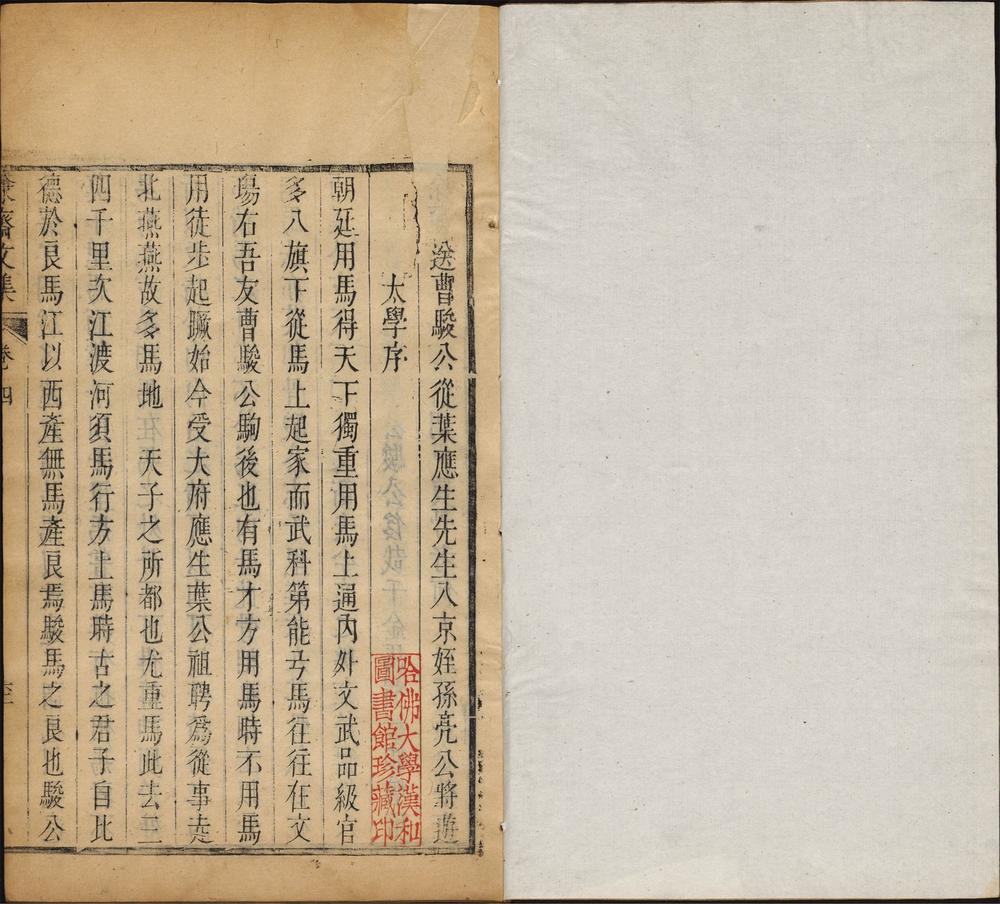 送曹駿公從葉應生先生入京姪孫亮公將遊
太學序
朝廷用馬得天下獨重用馬上通內外文武品級官
多八旗下從馬上起家而武科第能弓馬往往在文
場右吾友曹駿公駒後也有馬才方用馬時不用馬
用徒步起蹶始今受大府應生葉公祖聘為從事走
北燕燕故多馬地在天子之所都也尤重馬此去三
四千里次江渡河須馬行方上馬時古之君子自比
德於良馬江以西產無馬產良焉駿馬之良也駿公
齋文集
卷四
哈佛大學漢和
圖書館珍藏印